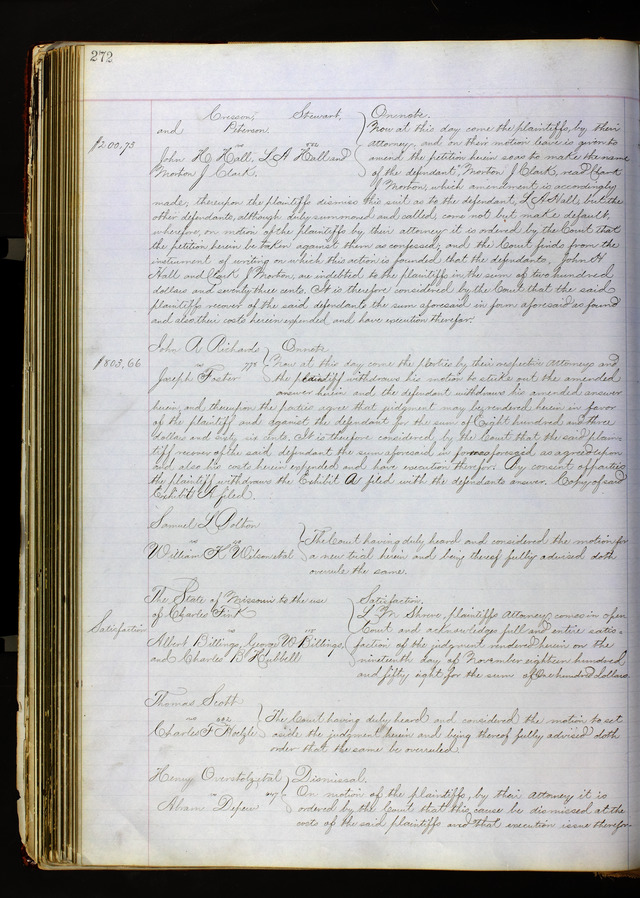 272
Cresson, Stewart, On note.
and Peterson. Now at this day come the plaintiffs, by their
$200,73 Attorney, and on their motion leave is given to
John H Hall, L A Hall and amend the petition herein so as to make the name
Morton J Clark. of the defendant, Morton J Clark, read Clark
J Morton, which amendment is accordingly
made; thereupon the plaintiffs dismiss this suit as to the defendant, L A Hall, but the
other defendants, although duly summoned and called, come not but make default;
wherefore, on motion of the plaintiffs by their attorney it is ordered by the Court that
the petition herein be taken against them as confessed; and the Court finds from the
instrument of writing on which this action is founded that the defendants, John H
Hall and Clark J Morton, are indebted to the plaintiffs in the sum of two hundred
dollars and seventy three cents. It is therefore considered by the Court that the said
plaintiffs recover of the said defendants the sum aforesaid in form aforesaid as found
and also their costs herein expended and have execution therefor.
John A Richards On note
$803,66 vs 778 Now at this day come the parties by their respective Attorneys and
Joseph Foster the plaintiff withdraws his motion to strike out the amended
answer herein and the defendant withdraws his amended answer
herein, and thereupon the parties agree that judgment may be rendered herein in favor
of the plaintiff and against the defendant for the sum of Eight hundred and three
dollars and sixty six cents. It is therefore considered by the Court that the said plain-
tiff recover of the said defendant the sum aforesaid in form aforesaid as agreed upon
and also his costs herein expended and have execution therefor. By consent of parties
the plaintiff withdraws the Exhibit A filed with the defendants answer. Copy of said
Exhibit A filed.
Samuel T Dolton
vs The Court having duly heard and considered the motion for
William K Wilson etal a new trial herein and being thereof fully advised doth
overrule the same.
The State of Missouri to the use Satisfaction.
of Charles Fink L M Shreve, plaintiffs Attorney, comes in open
Satisfaction vs Court and acknowledges full and entire satis-
Albert Billings, George W Billings, faction of the judgment rendered herein on the
and Charles B Hubbell nineteenth day of November eighteen hundred
and fifty eight for the sum of One hundred dollars.
Thomas Scott
vs The Court having duly heard and considered the motion to set
Charles F aside the judgment herein and being thereof fully advised doth
order that the same be overruled.
Henry Overstolz, etal Dismissal.
vs On motion of the plaintiffs, by their Attorney it is
Abram Depew ordered by the Court that this cause be dismissed at the
costs of the said plaintiffs and that execution issue therefor.